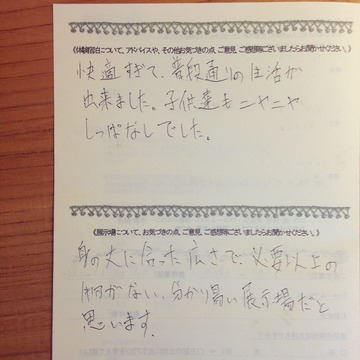 《体験宿泊について、アドバイスや、その他お気づきの点、ご意見、ご感想等ございましたらお聞かせください。》
快適すぎて、普段通りの生活が
出来ました。子供達もニヤニヤ
しっぱなしでした。
《展示場について、お気づきの点、ご意見、ご感想等ございましたらお聞かせください。》
身の丈に合った広さで、必要以上の
物がない、分かり易い展示場だと
思います。